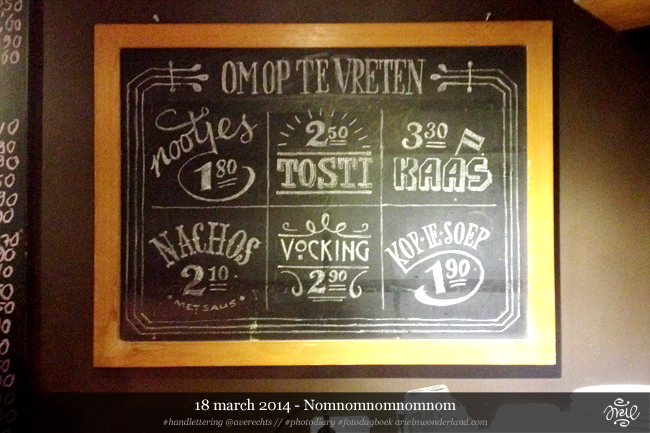 OM OP TE VRETEN
nootjes
1.80
2.50
TOSTI
3.30
KAAS
NACHOS
2.10
"MET SAUS"
VOCKING
2.90
KOP·JE·SOEP
1.90
18 march 2014 - Nomnomnomnomnom
#handlettering @averechts // #photodiary #fotodagboek arieinwonderland.com